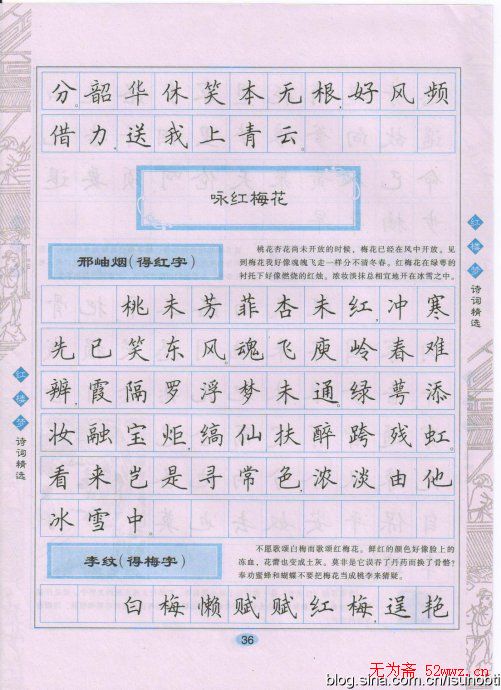 分。韶华休笑本无根，好风频
借力，送我上青云。
咏红梅花
邢岫烟(得红字)
桃花杏花尚未开放的时候，梅花已经在风中开放。见
到梅花我好像魂魄飞走一样分不清冬春。红梅花在绿萼的
衬托下好像燃烧的红烛。浓妆淡抹总相宜地开在冰雪之中。
桃未芳菲杏未红，冲寒
先已笑东风。魂飞庾岭春难
辨，霞隔罗浮梦未通。绿萼添
妆融宝炬，缟仙扶醉跨残虹。
看来岂是寻常色，浓淡由他
冰雪中。
李纹(得梅字)
不愿歌颂白梅而歌颂红梅花。鲜红的颜色好像脸上的
冻血，花蕾也变成土灰。莫非是它误吞了丹药而换了骨骼?
奉劝蜜蜂和蝴蝶不要把梅花当成桃李来猜疑。
白梅懒赋赋红梅，逞艳
36
红楼梦
诗词精选
红楼梦
诗词精选
无为斋 52wwz.cn
blog.sina.com.cn/isunobti